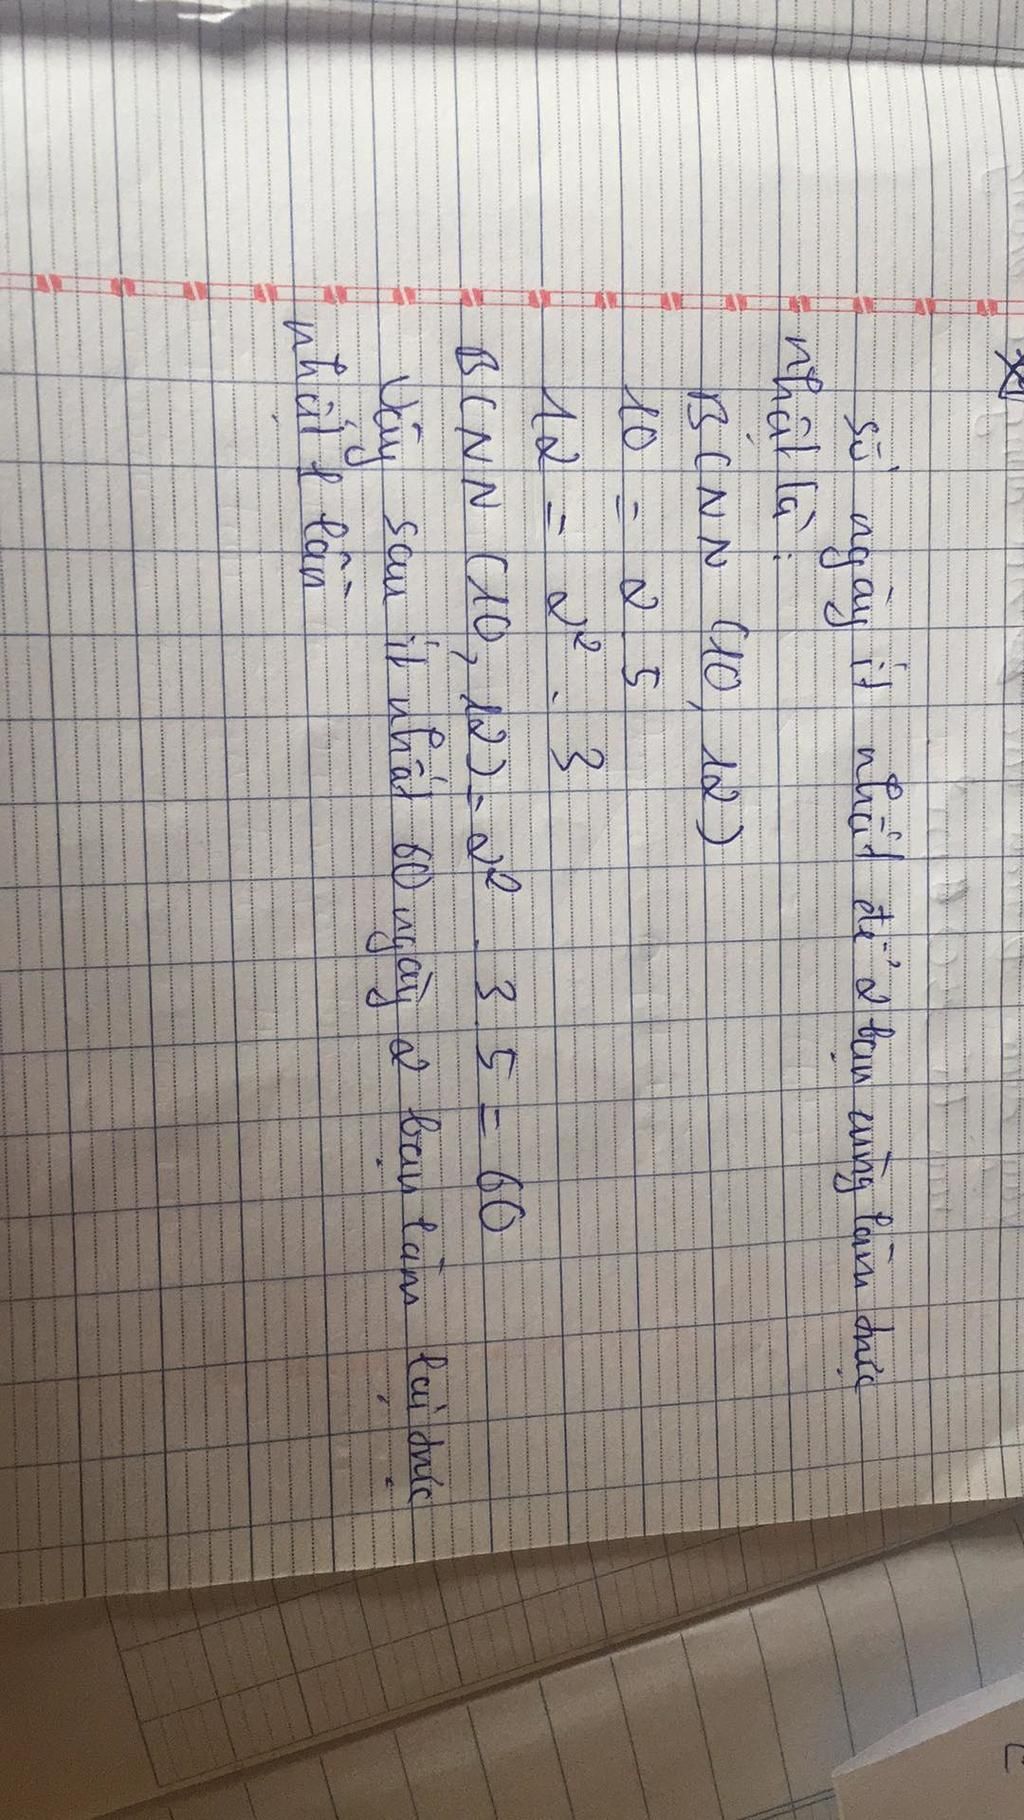 số ngày ít nhất để 2 bạn cùng làm trực
nhật là :
BCNN (10, 12)
10 = 2.5
12 = 2² . 3
BCNN (10, 12) = 2² . 3.5 = 60
Vậy sau ít nhất 60 ngày 2 bạn làm lại trực
nhật 1 lần